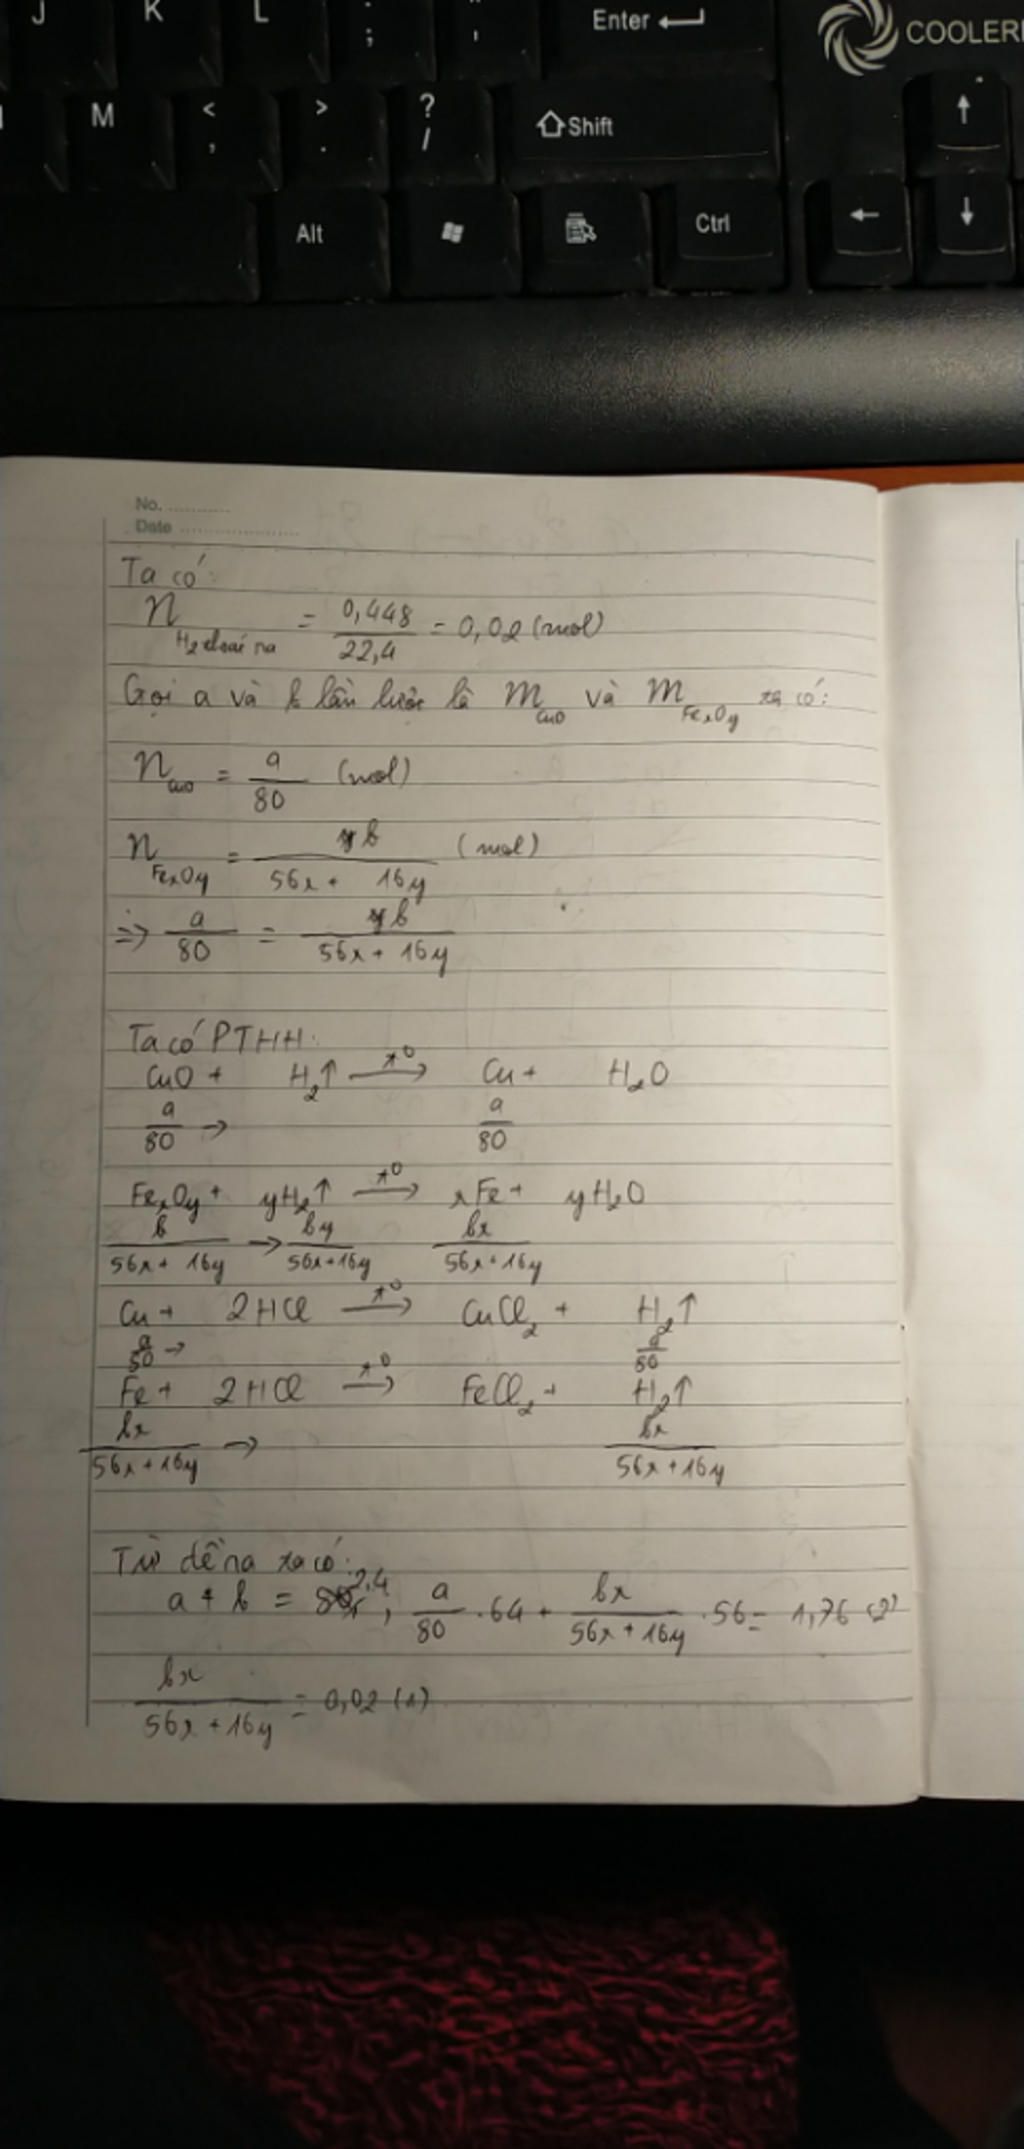 J K L : ; " ' Enter COOLER
M < , > . ? / Shift ↑
Alt Ctrl ← ↓
No. ............
Date ......................
Ta có:
n H₂ thoát ra = 0,448 / 22,4 = 0,02 (mol)
Gọi a và b lần lượt là m CuO và m FexOy ta có:
n CuO = a / 80 (mol)
n FexOy = b / 56x + 16y (mol)
=> a / 80 = b / 56x + 16y
Ta có PTHH:
CuO + H₂↑ —t⁰→ Cu + H₂O
a / 80 → a / 80
FexOy + yH₂↑ —t⁰→ xFe + yH₂O
b / 56x + 16y → by / 56x+16y bx / 56x+16y
Cu + 2HCl —t⁰→ CuCl₂ + H₂↑
a / 80 → a / 80
Fe + 2HCl —t⁰→ FeCl₂ + H₂↑
bx / 56x+16y → bx / 56x+16y
Từ đề ra ta có:
a + b = 2,4 , a / 80 .64 + bx / 56x+16y .56 = 1,76 (2)
bx / 56x+16y = 0,02 (1)